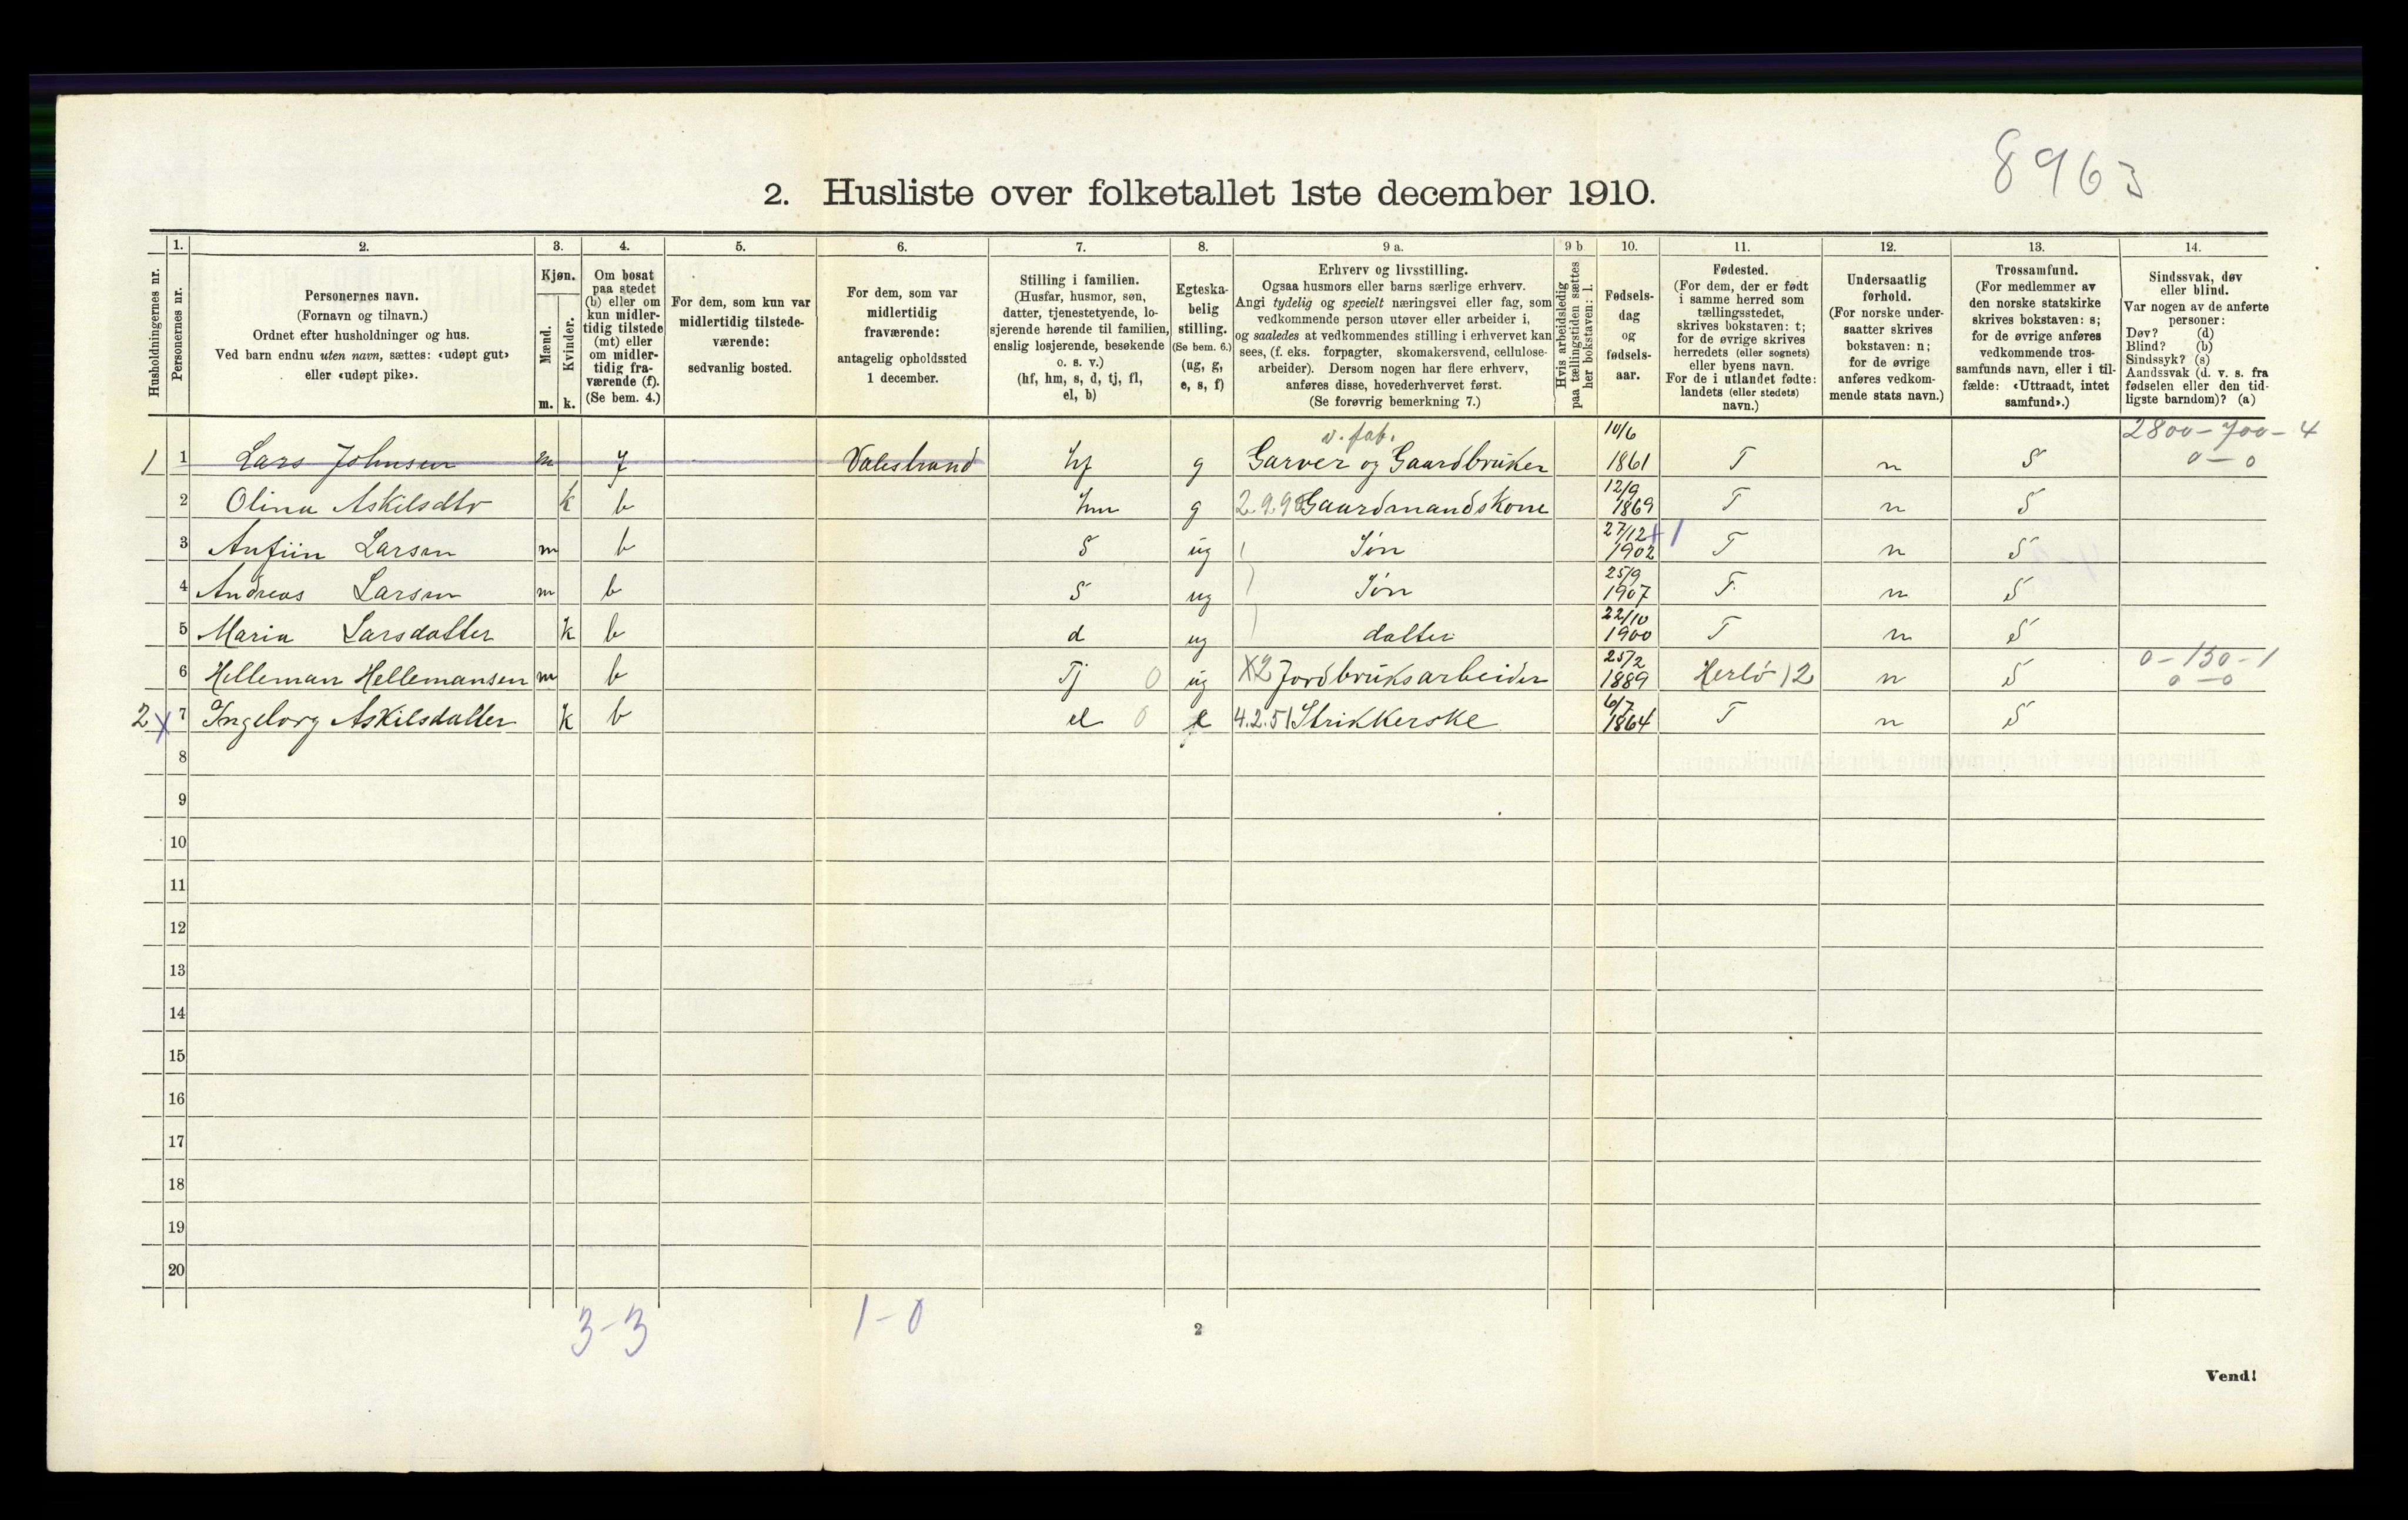 8963
2. Husliste over folketallet 1ste december 1910.
Husholdningernes nr.
1. Personernes nr.
2. Personernes navn.
(Fornavn og tilnavn.)
Ordnet efter husholdninger og hus.
Ved barn endnu uten navn, sættes: «udøpt gut»
eller «udøpt pike».
3. Kjøn.
Mænd. m.
Kvinder. k.
4. Om bosat
paa stedet
(b) eller om
kun midler-
tidig tilstede
(mt) eller
om midler-
tidig fra-
værende (f).
(Se bem. 4.)
5. For dem, som kun var
midlertidig tilstede-
værende:
sedvanlig bosted.
6. For dem, som var
midlertidig
fraværende:
antagelig opholdssted
1 december.
7. Stilling i familien.
(Husfar, husmor, søn,
datter, tjenestetyende, lo-
sjerende hørende til familien,
enslig losjerende, besøkende
o. s. v.)
(hf, hm, s, d, tj, fl,
el, b)
8. Egteska-
belig
stilling.
(Se bem. 6.)
(ug, g,
e, s, f)
9 a. Erhverv og livsstilling.
Ogsaa husmors eller barns særlige erhverv.
Angi tydelig og specielt næringsvei eller fag, som
vedkommende person utøver eller arbeider i,
og saaledes at vedkommendes stilling i erhvervet kan
sees, (f. eks. forpagter, skomakersvend, cellulose-
arbeider). Dersom nogen har flere erhverv,
anføres disse, hovederhvervet først.
(Se forøvrig bemerkning 7.)
9 b Hvis arbeidsledig
paa tællingstiden sættes
her bokstaven: l.
10. Fødsels-
dag
og
fødsels-
aar.
11. Fødested.
(For dem, der er født
i samme herred som
tællingsstedet,
skrives bokstaven: t;
for de øvrige skrives
herredets (eller sognets)
eller byens navn.
For de i utlandet fødte:
landets (eller stedets)
navn.)
12. Undersaatlig
forhold.
(For norske under-
saatter skrives
bokstaven: n;
for de øvrige
anføres vedkom-
mende stats navn.)
13. Trossamfund.
(For medlemmer av
den norske statskirke
skrives bokstaven: s;
for de øvrige anføres
vedkommende tros-
samfunds navn, eller i til-
fælde: «Uttraadt, intet
samfund».)
14. Sindssvak, døv
eller blind.
Var nogen av de anførte
personer:
Døv? (d)
Blind? (b)
Sindssyk? (s)
Aandssvak (d. v. s. fra
fødselen eller den tid-
ligste barndom)? (a)
v. fab. 10/6 2800-700-4
1 1 Lars Johnsen m f Valestrand hf g Garver og Gaardbruker 1861 T n S 0-0
2 Olina Askilsdtr k b hm g 2.9.98 Gaardmandskone 12/9 1869 T n S
3 Anfiin Larsen m b S ug Søn 27/12 1902 +1 T n S
4 Andreas Larsen m b S ug Søn 25/9 1907 T n S
5 Maria Larsdatter k b d ug datter 22/10 1900 T n S
6 Helleman Hellemansen m b Tj 0 ug X2 Jordbruksarbeider 25/2 1889 Herlö 2 n S 0-150-1 0-0
2 x 7 Ingeborg Askilsdatter k b el 0 4.2.51 Strikkerske 6/7 1864 T n S
8
9
10
11
12
13
14
15
16
17
18
19
20
3-3 1-0
2
Vend!